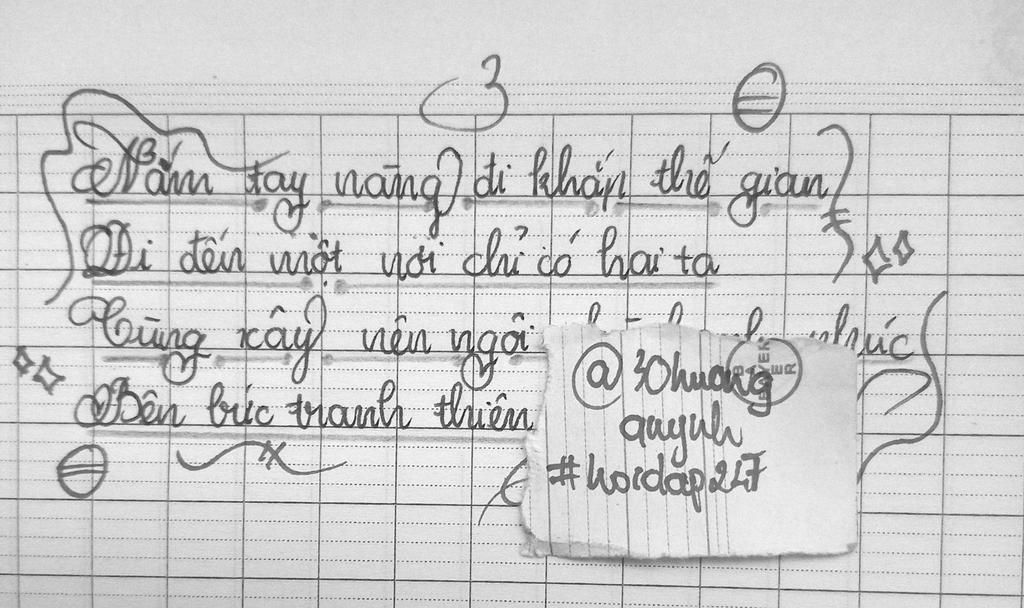 3
Nắm tay nàng đi khắp thế gian
Đi đến một nơi chỉ có hai ta
Cùng xây nên ngôi phúc
Bên bức tranh thiên
@30huong
quynh
#hoidap247
BAYER